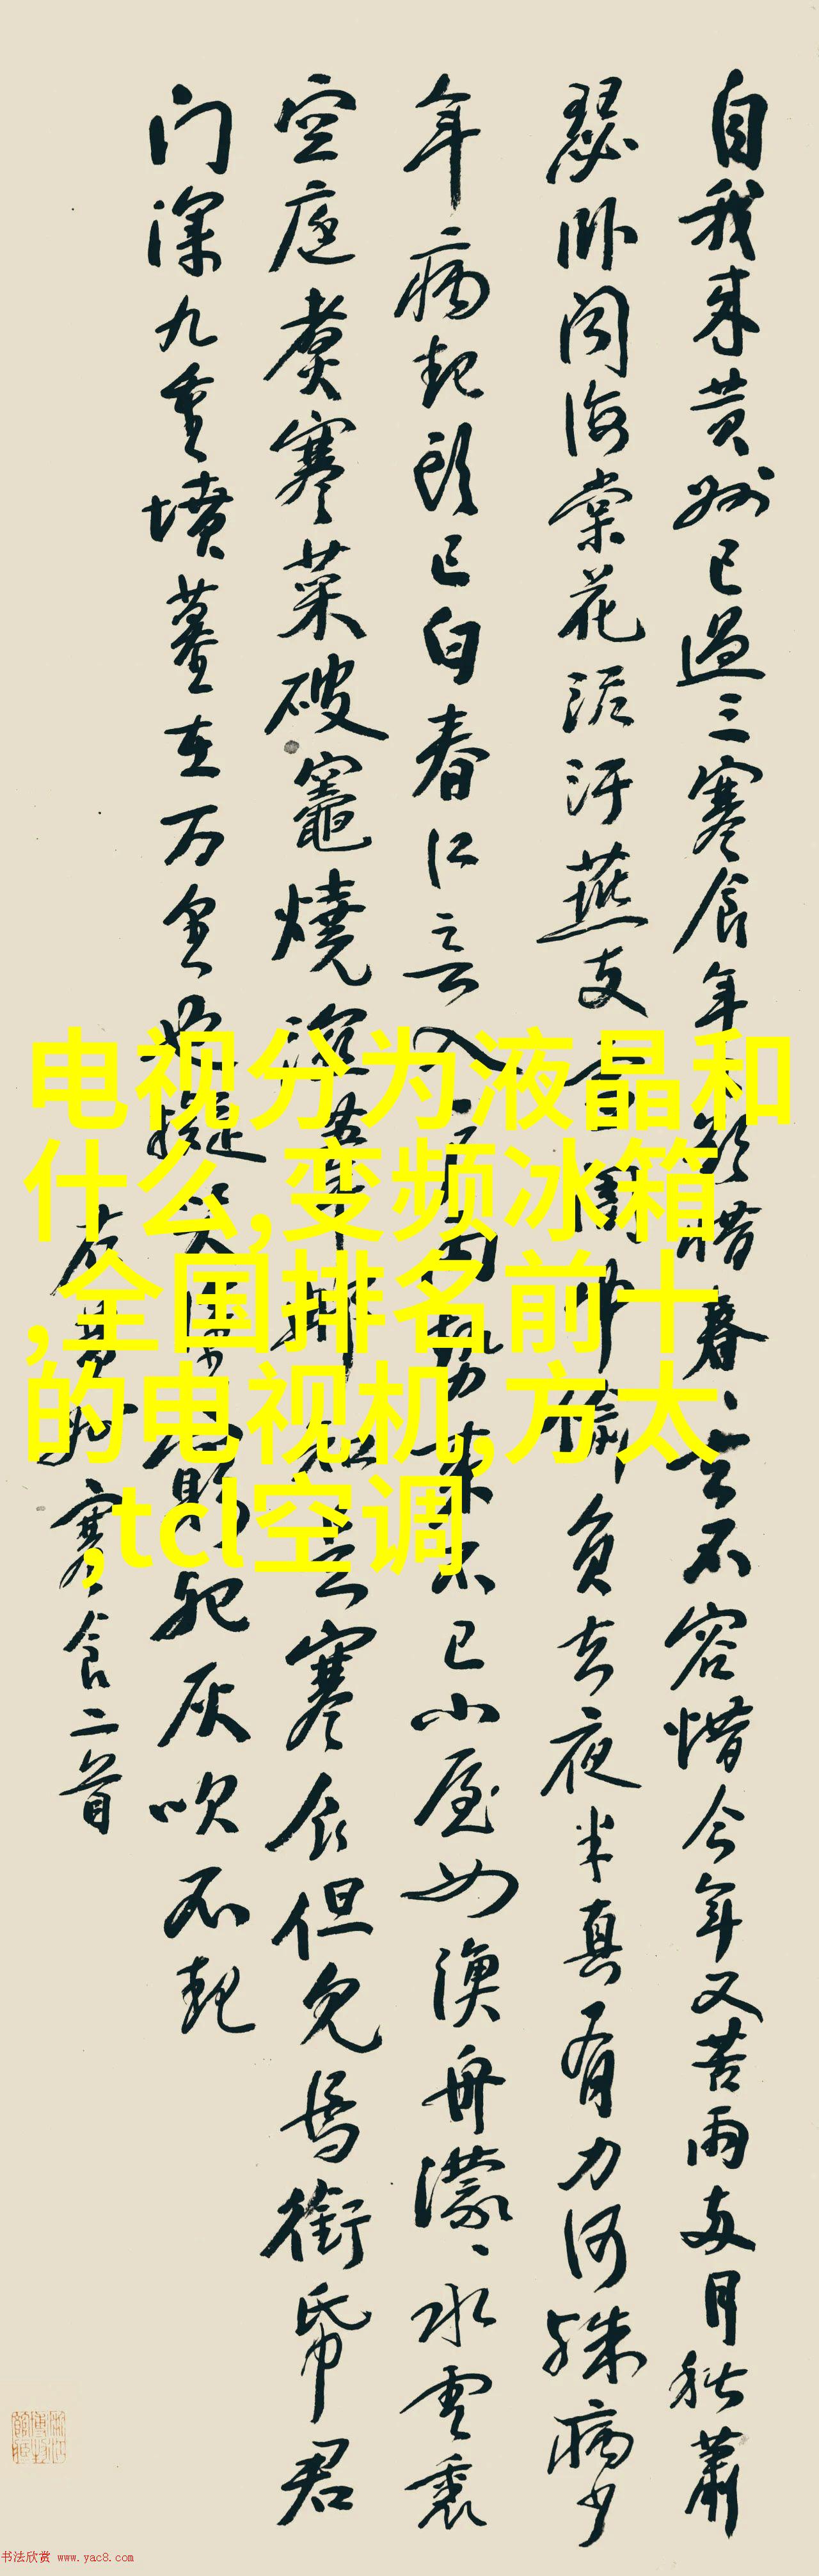 自我来黄州已過三寒食年、欲惜春、去不容惜今年又苦雨两月秋蕭
瑟卧闻海棠花泥汙燕支雪闇中偷負去夜半真有力何殊病少
年病起頭已白春江言入户雨勢来不已小屋如漁舟濛、水雲裏
空庭煮寒菜破竈燒溼葦那知是寒食但見烏銜帋君
门深九重墳墓在万里也擬哭塗窮死灰吹不起
右黄州寒食二首
电视分为液晶和
什么,变频冰箱
,全国排名前十
的电视机,方太
,tcl空调
书法欣赏 www.yac8.com